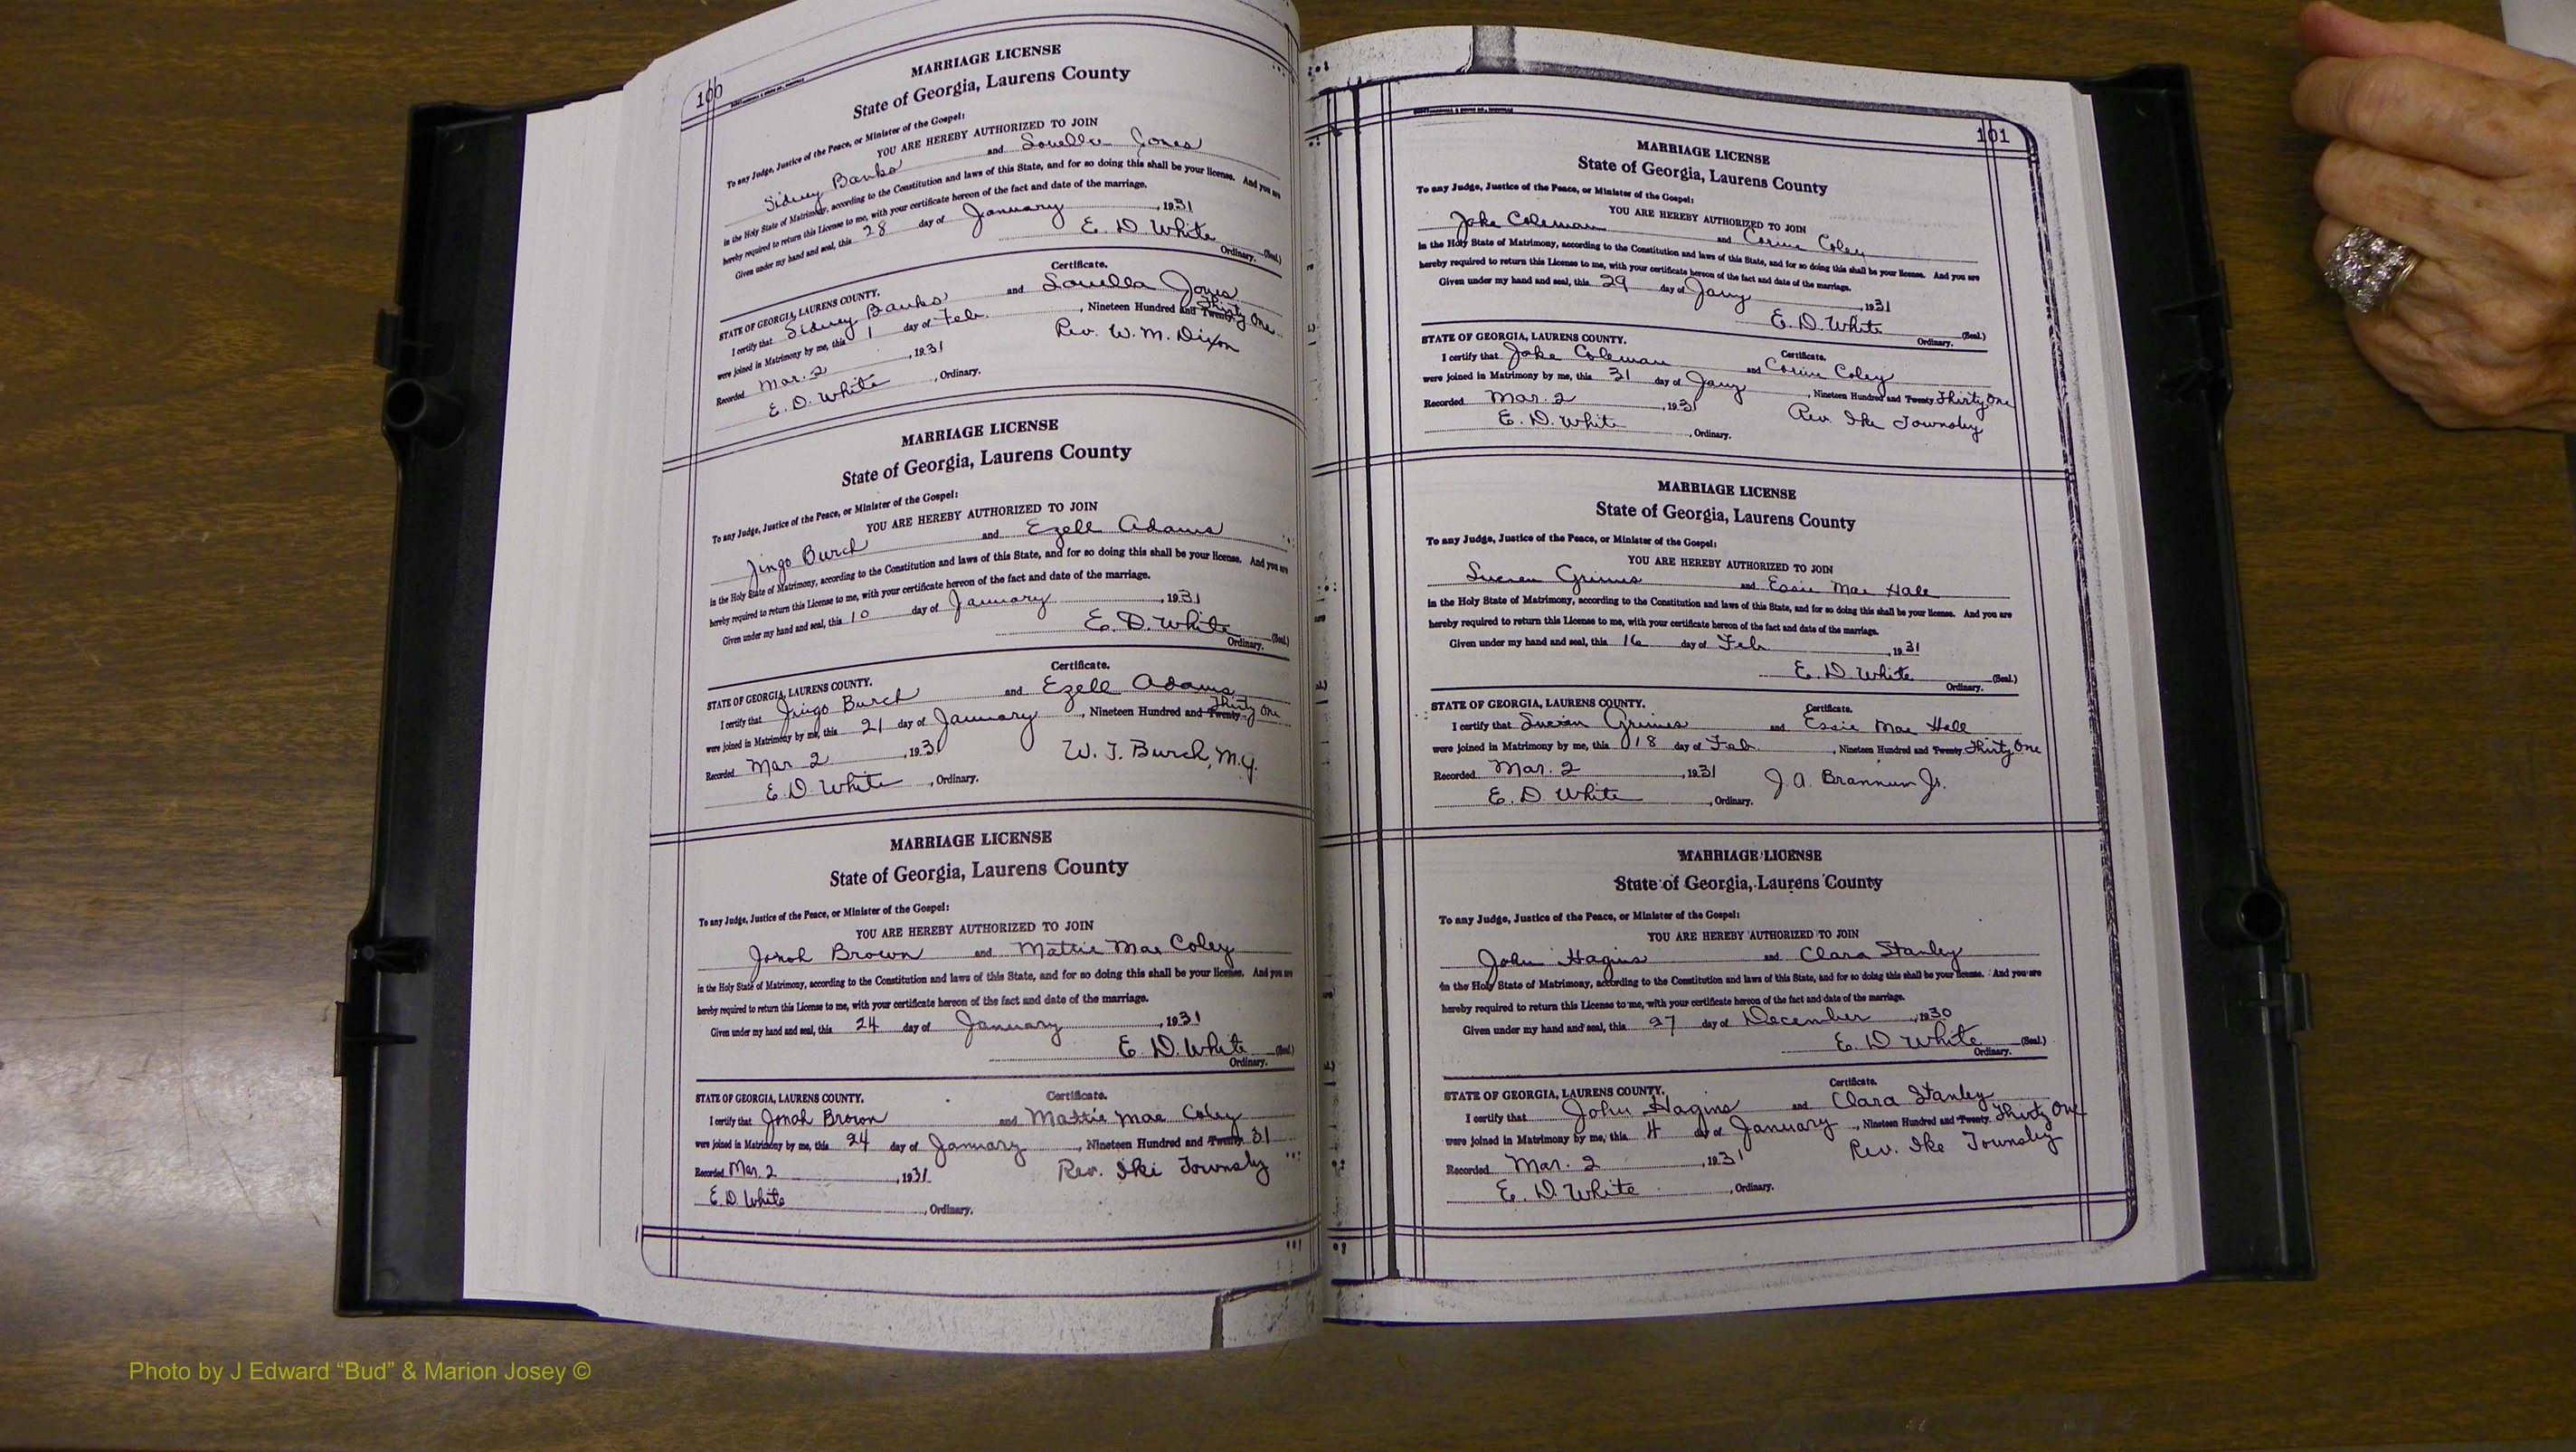 100
MARRIAGE LICENSE
State of Georgia, Laurens County
To any Judge, Justice of the Peace, or Minister of the Gospel:
YOU ARE HEREBY AUTHORIZED TO JOIN
Sidney Banks and Louella Jones
in the Holy State of Matrimony, according to the Constitution and laws of this State, and for so doing this shall be your license. And you are
hereby required to return this License to me, with your certificate hereon of the fact and date of the marriage.
Given under my hand and seal, this 28 day of January, 1931
E. D. White (Seal.)
Ordinary.
Certificate.
STATE OF GEORGIA, LAURENS COUNTY.
I certify that Sidney Banks and Louella Jones
were joined in Matrimony by me, this 1 day of Feb., Nineteen Hundred and Twenty Thirty One
Recorded Mar. 2, 1931 Rev. W. M. Dixon
E. D. White, Ordinary.
MARRIAGE LICENSE
State of Georgia, Laurens County
To any Judge, Justice of the Peace, or Minister of the Gospel:
YOU ARE HEREBY AUTHORIZED TO JOIN
Jingo Burch and Ezell Adams
in the Holy State of Matrimony, according to the Constitution and laws of this State, and for so doing this shall be your license. And you are
hereby required to return this License to me, with your certificate hereon of the fact and date of the marriage.
Given under my hand and seal, this 10 day of January, 1931
E. D. White (Seal.)
Ordinary.
Certificate.
STATE OF GEORGIA, LAURENS COUNTY.
I certify that Jingo Burch and Ezell Adams
were joined in Matrimony by me, this 21 day of January, Nineteen Hundred and Twenty Thirty One
Recorded Mar 2, 1931 W. T. Burch, M.G.
E. D. White, Ordinary.
MARRIAGE LICENSE
State of Georgia, Laurens County
To any Judge, Justice of the Peace, or Minister of the Gospel:
YOU ARE HEREBY AUTHORIZED TO JOIN
Jonah Brown and Mattie Mae Coley
in the Holy State of Matrimony, according to the Constitution and laws of this State, and for so doing this shall be your license. And you are
hereby required to return this License to me, with your certificate hereon of the fact and date of the marriage.
Given under my hand and seal, this 24 day of January, 1931
E. D. White (Seal.)
Ordinary.
Certificate.
STATE OF GEORGIA, LAURENS COUNTY.
I certify that Jonah Brown and Mattie Mae Coley
were joined in Matrimony by me, this 24 day of January, Nineteen Hundred and Twenty 31
Recorded Mar. 2, 1931 Rev. Iki Townsly
E. D. White, Ordinary.
101
MARRIAGE LICENSE
State of Georgia, Laurens County
To any Judge, Justice of the Peace, or Minister of the Gospel:
YOU ARE HEREBY AUTHORIZED TO JOIN
Jake Coleman and Corine Coley
in the Holy State of Matrimony, according to the Constitution and laws of this State, and for so doing this shall be your license. And you are
hereby required to return this License to me, with your certificate hereon of the fact and date of the marriage.
Given under my hand and seal, this 29 day of Jany, 1931
E. D. White (Seal.)
Ordinary.
STATE OF GEORGIA, LAURENS COUNTY. Certificate.
I certify that Jake Coleman and Corine Coley
were joined in Matrimony by me, this 31 day of Jany, Nineteen Hundred and Twenty Thirty One
Recorded Mar. 2, 1931 Rev. Ike Townsley
E. D. White, Ordinary.
MARRIAGE LICENSE
State of Georgia, Laurens County
To any Judge, Justice of the Peace, or Minister of the Gospel:
YOU ARE HEREBY AUTHORIZED TO JOIN
Lucien Grimes and Essie Mae Hall
in the Holy State of Matrimony, according to the Constitution and laws of this State, and for so doing this shall be your license. And you are
hereby required to return this License to me, with your certificate hereon of the fact and date of the marriage.
Given under my hand and seal, this 16 day of Feb, 1931
E. D. White (Seal.)
Ordinary.
STATE OF GEORGIA, LAURENS COUNTY. Certificate.
I certify that Lucien Grimes and Essie Mae Hall
were joined in Matrimony by me, this 18 day of Feb., Nineteen Hundred and Twenty Thirty One
Recorded Mar. 2, 1931 J. A. Brannum Jr.
E. D. White, Ordinary.
MARRIAGE LICENSE
State of Georgia, Laurens County
To any Judge, Justice of the Peace, or Minister of the Gospel:
YOU ARE HEREBY AUTHORIZED TO JOIN
John Hagins and Clara Stanley
in the Holy State of Matrimony, according to the Constitution and laws of this State, and for so doing this shall be your license. And you are
hereby required to return this License to me, with your certificate hereon of the fact and date of the marriage.
Given under my hand and seal, this 27 day of December, 1930
E. D. White (Seal.)
Ordinary.
Certificate.
STATE OF GEORGIA, LAURENS COUNTY.
I certify that John Hagins and Clara Stanley
were joined in Matrimony by me, this 4 day of January, Nineteen Hundred and Twenty Thirty One
Recorded Mar. 2, 1931 Rev. Ike Townsley
E. D. White, Ordinary.
Photo by J Edward “Bud” & Marion Josey ©